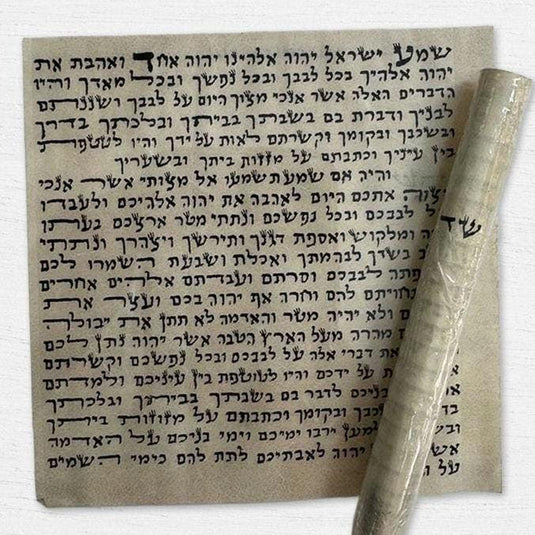 שמע ישראל יהוה אלהינו יהוה אחד ואהבת את
יהוה אלהיך בכל לבבך ובכל נפשך ובכל מאדך והיו
הדברים האלה אשר אנכי מצוך היום על לבבך ושננתם
לבניך ודברת בם בשבתך בביתך ובלכתך בדרך
ובשכבך ובקומך וקשרתם לאות על ידך והיו לטטפת
בין עיניך וכתבתם על מזזות ביתך ובשעריך
והיה אם שמע תשמעו אל מצותי אשר אנכי
מצוה אתכם היום לאהבה את יהוה אלהיכם ולעבדו
לבבכם ובכל נפשכם ונתתי מטר ארצכם בעתו
ומלקוש ואספת דגנך ותירשך ויצהרך ונתתי
בשדך לבהמתך ואכלת ושבעת השמרו לכם
לבבכם וסרתם ועבדתם אלהים אחרים
להם וחרה אף יהוה בכם ועצר את
ולא יהיה מטר והאדמה לא תתן את יבולה
מהרה מעל הארץ הטבה אשר יהוה נתן לכם
את דברי אלה על לבבכם ועל נפשכם וקשרתם
על ידכם והיו לטוטפת בין עיניכם ולמדתם
בניכם לדבר בם בשבתך בביתך ובלכתך
ובקומך וכתבתם על מזוזות ביתך
למען ירבו ימיכם וימי בניכם על האדמה
יהוה לאבתיכם לתת להם כימי השמים
על